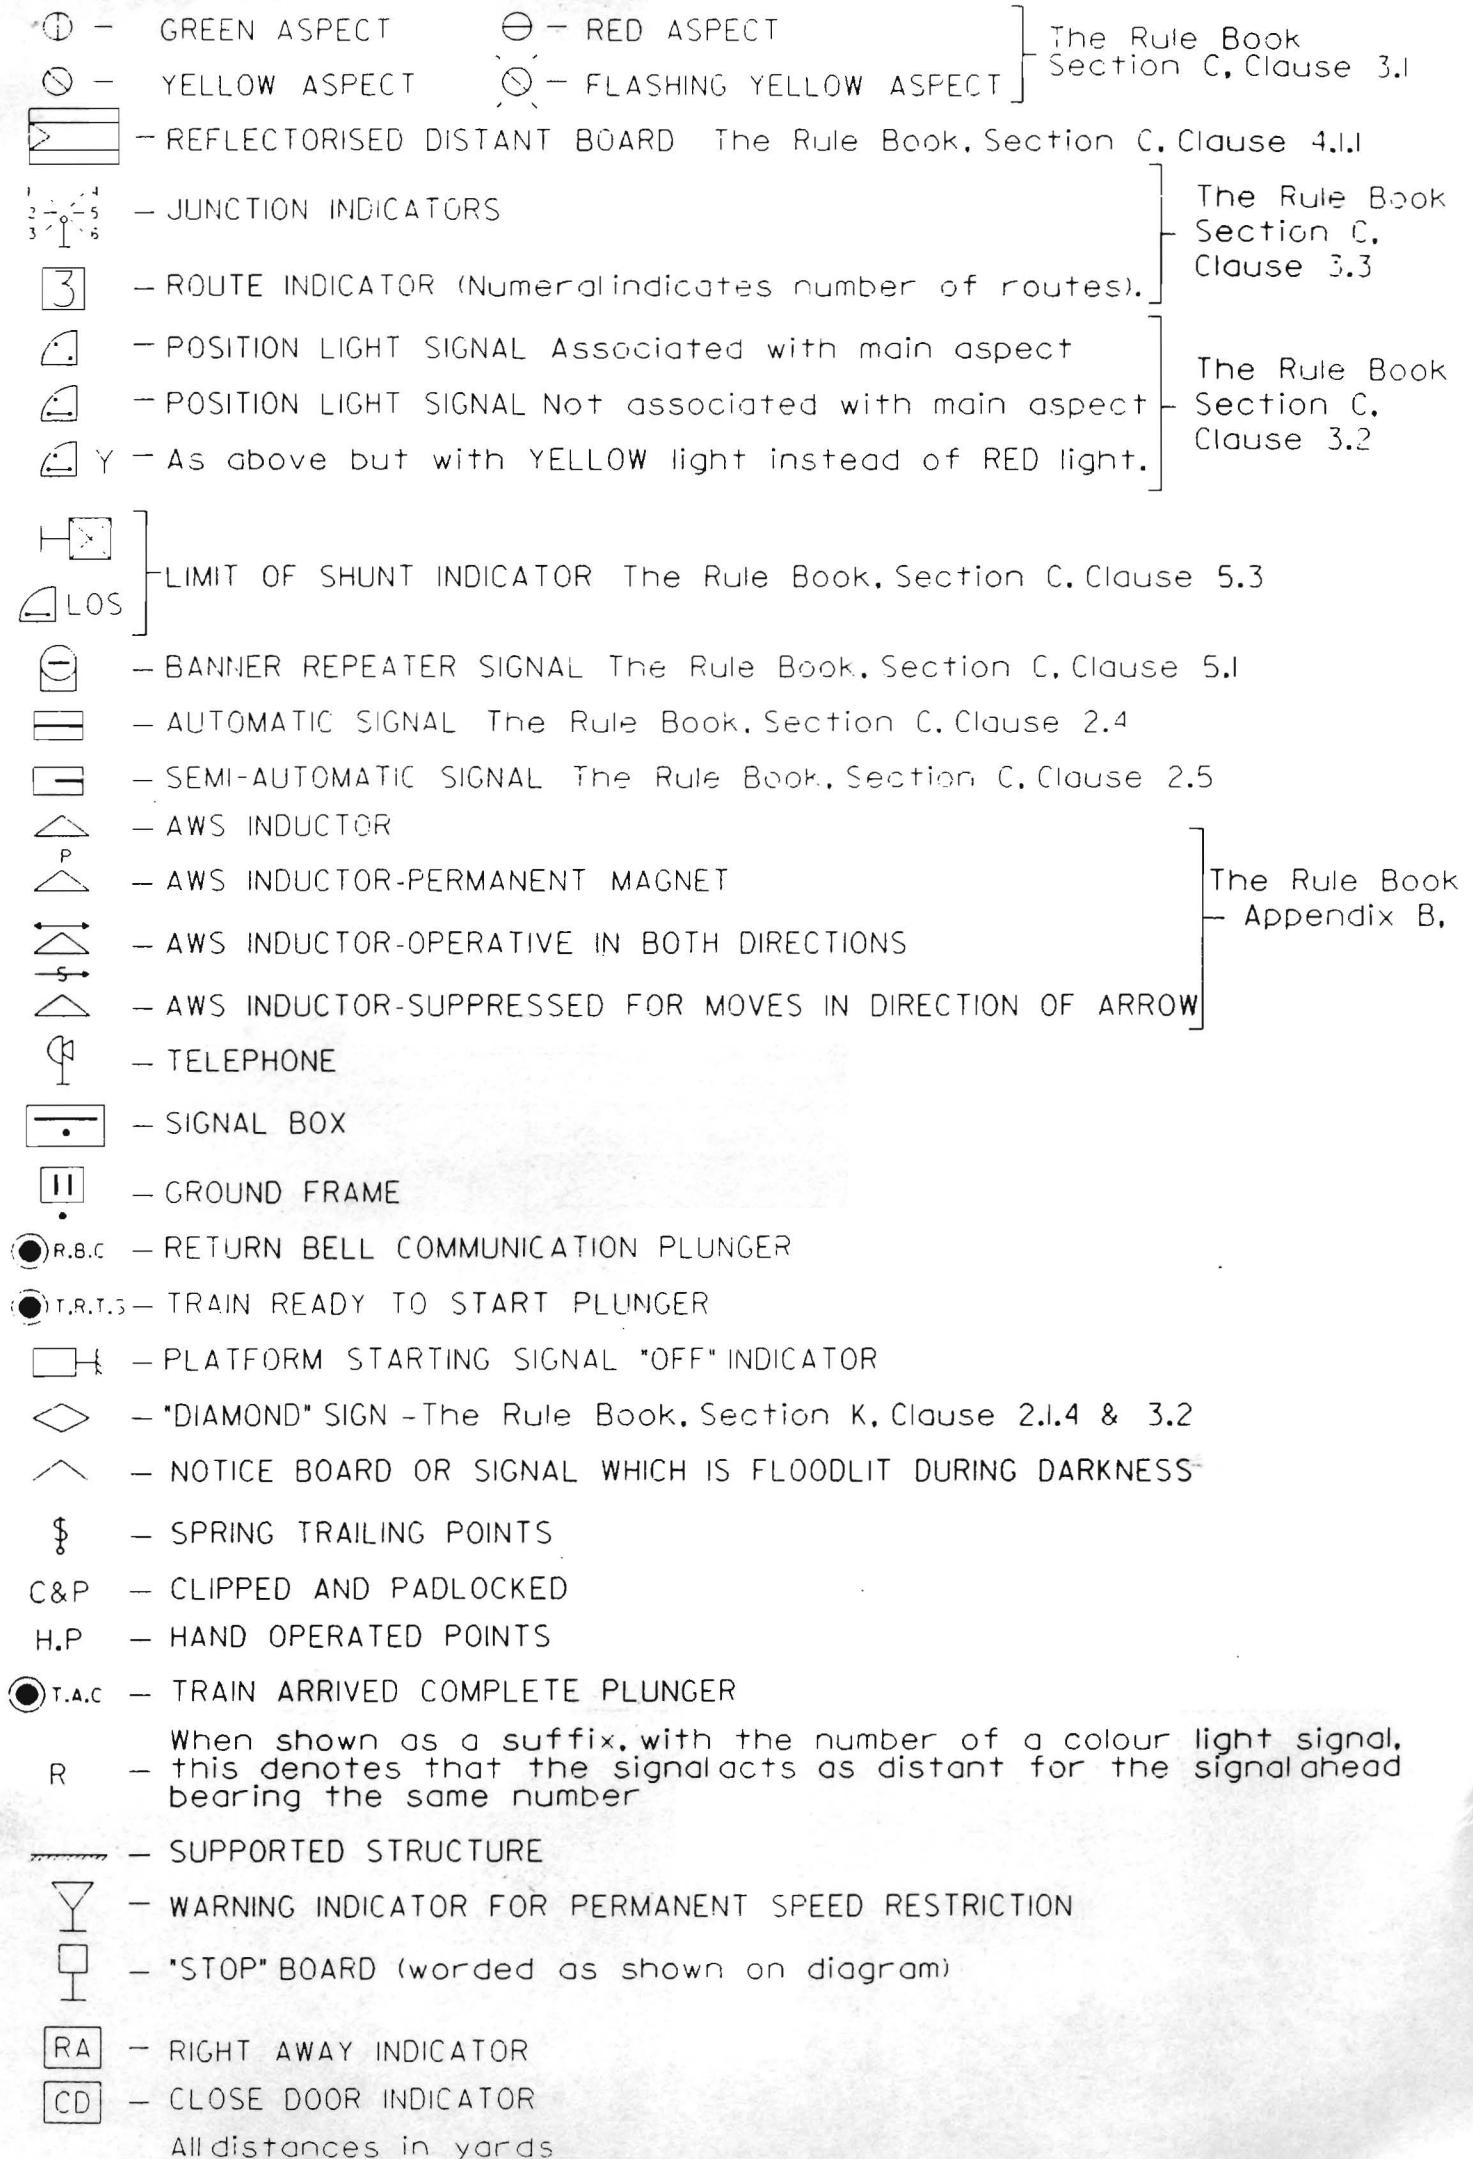 - GREEN ASPECT - RED ASPECT
The Rule Book
Section C, Clause 3.1
- YELLOW ASPECT - FLASHING YELLOW ASPECT
- REFLECTORISED DISTANT BOARD The Rule Book, Section C, Clause 4.1.1
1 4
2 5
3 6
- JUNCTION INDICATORS
The Rule Book
Section C,
Clause 3.3
3 - ROUTE INDICATOR (Numeral indicates number of routes).
- POSITION LIGHT SIGNAL Associated with main aspect
The Rule Book
Section C,
Clause 3.2
- POSITION LIGHT SIGNAL Not associated with main aspect
Y - As above but with YELLOW light instead of RED light.
LOS
LIMIT OF SHUNT INDICATOR The Rule Book, Section C, Clause 5.3
- BANNER REPEATER SIGNAL The Rule Book, Section C, Clause 5.1
- AUTOMATIC SIGNAL The Rule Book, Section C, Clause 2.4
- SEMI-AUTOMATIC SIGNAL The Rule Book, Section C, Clause 2.5
- AWS INDUCTOR
P
- AWS INDUCTOR-PERMANENT MAGNET
The Rule Book
- Appendix B,
- AWS INDUCTOR-OPERATIVE IN BOTH DIRECTIONS
S
- AWS INDUCTOR-SUPPRESSED FOR MOVES IN DIRECTION OF ARROW
- TELEPHONE
- SIGNAL BOX
- GROUND FRAME
R.B.C - RETURN BELL COMMUNICATION PLUNGER
T.R.T.S - TRAIN READY TO START PLUNGER
- PLATFORM STARTING SIGNAL "OFF" INDICATOR
- "DIAMOND" SIGN - The Rule Book, Section K, Clause 2.1.4 & 3.2
- NOTICE BOARD OR SIGNAL WHICH IS FLOODLIT DURING DARKNESS
- SPRING TRAILING POINTS
C&P - CLIPPED AND PADLOCKED
H.P - HAND OPERATED POINTS
T.A.C - TRAIN ARRIVED COMPLETE PLUNGER
When shown as a suffix, with the number of a colour light signal,
R - this denotes that the signal acts as distant for the signal ahead
bearing the same number
- SUPPORTED STRUCTURE
- WARNING INDICATOR FOR PERMANENT SPEED RESTRICTION
- "STOP" BOARD (worded as shown on diagram)
RA - RIGHT AWAY INDICATOR
CD - CLOSE DOOR INDICATOR
All distances in yards